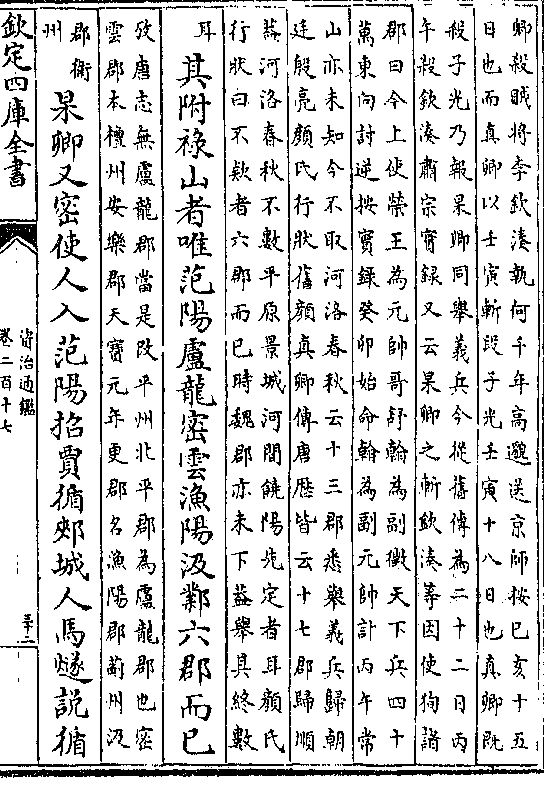 卿殺賊將李欽湊執何千年高邈送京師按己亥十五
日也而真卿以壬寅斬段子光壬寅十八日也真卿既
殺子光乃報杲卿同舉義兵今從舊傳為二十二日丙
午殺欽湊肅宗實録又云杲卿之斬欽湊等因使狥諸
郡曰今上使榮王為元帥哥舒翰為副徵天下兵四十
萬東向討逆按實錄癸卯始命翰為副元帥計丙午常
山亦未知今不取河洛春秋云十三郡悉舉義兵歸朝
廷殷亮顔氏行狀舊顔真卿傳唐歴皆云十七郡歸順
葢河洛春秋不數平原景城河間饒陽先定者耳顔氏
行狀曰不欵者六郡而已時魏郡亦未下葢舉其終數
耳
其附祿山者唯范陽盧龍密雲漁陽汲鄴六郡而已
攷唐志無盧龍郡當是改平州北平郡為盧龍郡也密
雲郡本檀州安樂郡天寶元年更郡名漁陽郡薊州汲
郡衛
州
杲卿又密使人入范陽招賈循郟城人馬燧説循
欽定四庫全書
資治通鑑
卷二百十七